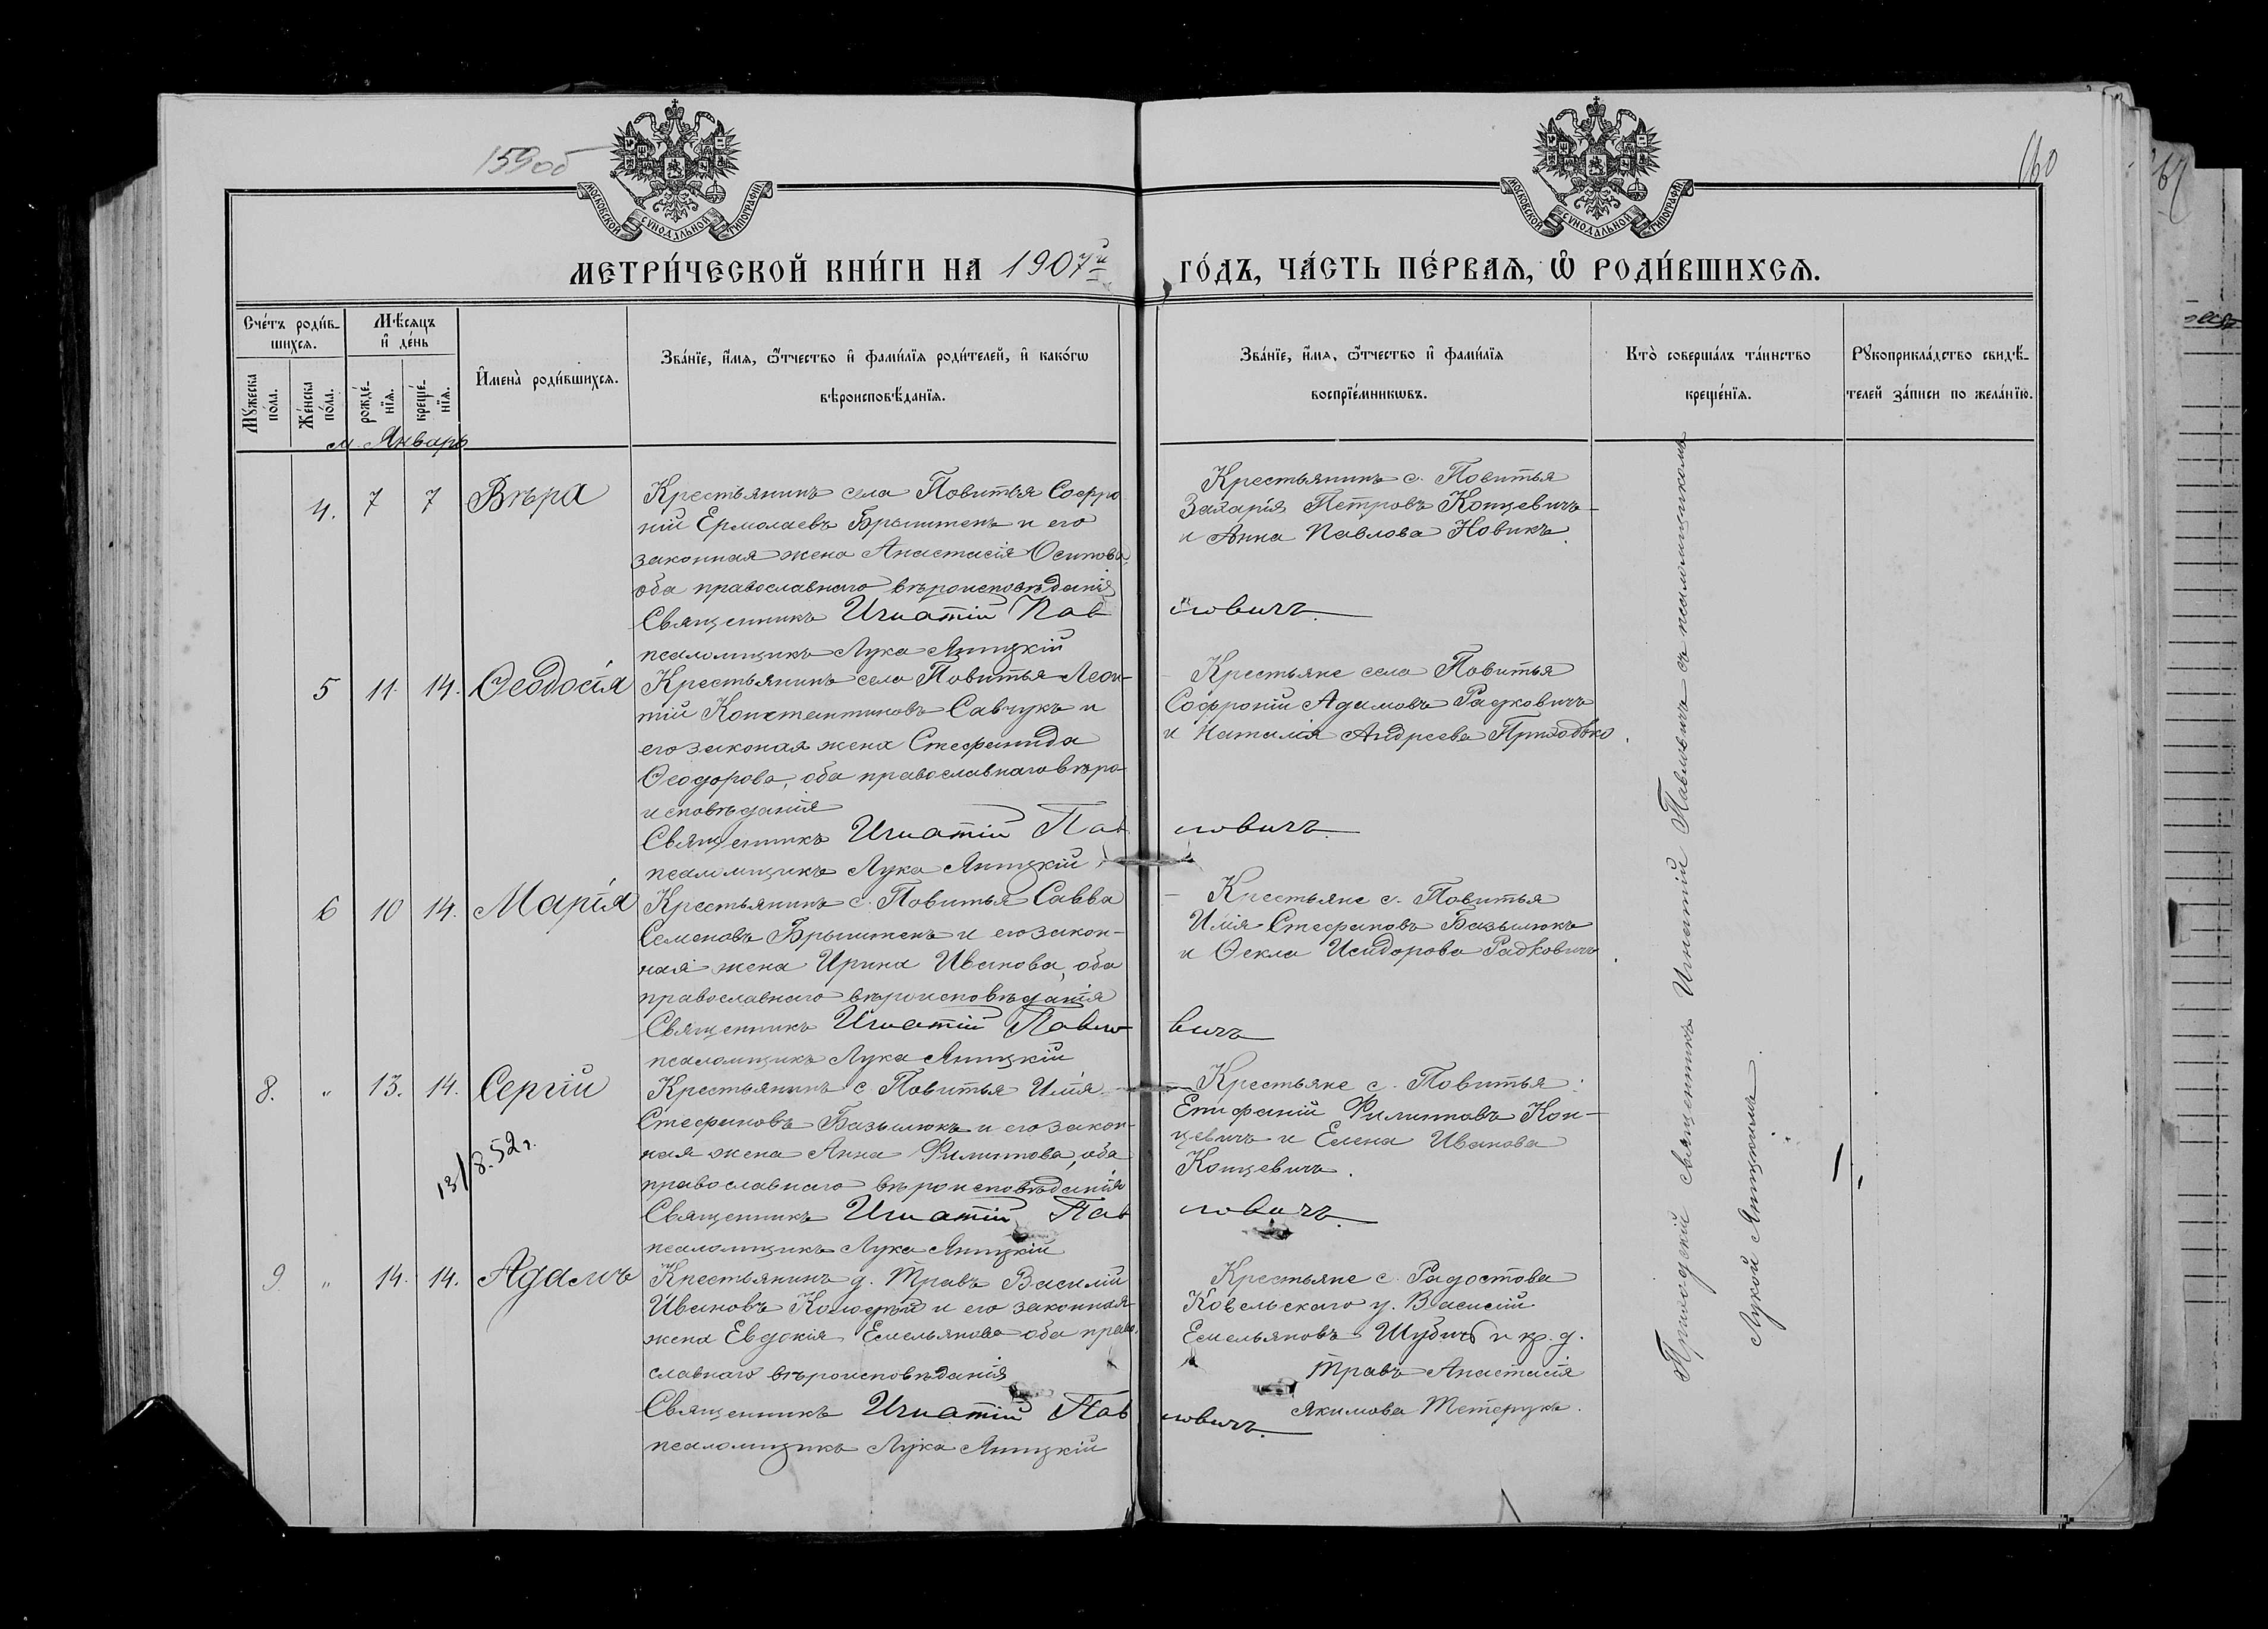 159об
160
МОСКОВСКОЙ СѴНОДАЛЬНОЙ ТИПОГРАФІИ
МОСКОВСКОЙ СѴНОДАЛЬНОЙ ТИПОГРАФІИ
МЕТРИ́ЧЕСКОЙ КНИ́ГИ НА 1907й
ГО́ДЪ, ЧА́СТЬ ПЕ́РВАѦ, Ѡ҆ РОДИ́ВШИХСѦ.
Сче́тъ роди́в-
шихсѧ.
Мꙋжеска
по́ла.
Же́нска
по́ла.
Мѣ́сѧцъ
и҆ де́нь
рожде́-
нїѧ.
креще́-
нїѧ.
И҆мена̀ роди́вшихсѧ.
Зва́нїе, и҆́мѧ, ѻ҆́тчество и҆ фами́лїѧ роди́телей, и҆ како́гѡ
вѣроисповѣ́данїѧ.
Зва́нїе, и҆́мѧ, ѻ҆́тчество и҆ фами́лїѧ
воспрїе́мникѡвъ.
Кто̀ соверша́лъ та́инство
креще́нїѧ.
Рꙋкоприкла́дство свидѣ́-
телей за́писи по жела́нїю.
м. Январь
4. 7 7 Вѣра
Крестьянинъ села Повитья Софро
ній Ермолаевъ Брыштенъ и его
законная жена Анастасія Осипова,
оба православнаго вѣроисповѣданія
Священникъ Игнатій Павловичъ.
псаломщикъ Лука Яницкій
Крестьянинъ с. Повитья
Захарія Петровъ Концевичъ
и Анна Павлова Новикъ.
5 11. 14. Ѳеодосія
Крестьянинъ села Повитья Леон-
тій Константиновъ Савчукъ и
его законая жена Стефанида
Ѳеодорова, оба православнаго вѣро-
исповѣданія
Священникъ Игнатій Павловичъ.
псаломщикъ Лука Яницкій
Крестьяне села Повитья
Софроній Адамовъ Радковичъ
и Наталія Андреева Приходько.
6 10 14. Марія
Крестьянинъ с. Повитья Савва
Семеновъ Брыштенъ и его закон-
ная жена Ирина Иванова, оба
православнаго вѣроисповѣданія
Священникъ Игнатій Павловичъ
псаломщикъ Лука Яницкій
Крестьяне с. Повитья
Илія Стефановъ Базылюкъ
и Ѳекла Исидорова Радковичъ.
8. " 13. 14. Сергій
13/8.52 г.
Крестьянинъ с Повитья Илія
Стефановъ Базылюкъ и его закон-
ная жена Анна Филиппова, оба
православнаго вѣроисповѣданія
Священникъ Игнатій Павловичъ.
псаломщикъ Лука Яницкій
Крестьяне с. Повитья:
Епифаній Филипповъ Кон-
цевичъ и Елена Иванова
Концевичъ.
9 " 14. 14. Адамъ
Крестьянинъ д. Травъ Василій
Ивановъ и его законная
жена Евдокія Емельянова оба право-
славнаго вѣроисповѣданія
Священникъ Игнатій Павловичъ.
псаломщикъ Лука Яницкій
Крестьяне с. Радостова
Ковельскаго у. Василій
Емельяновъ Шубичъ и кр. д.
Травъ Анастасія
Якимова Тетерукъ.
Приходскій священникъ Игнатій Павловичъ съ псаломщикомъ
Лукой Яницкимъ.